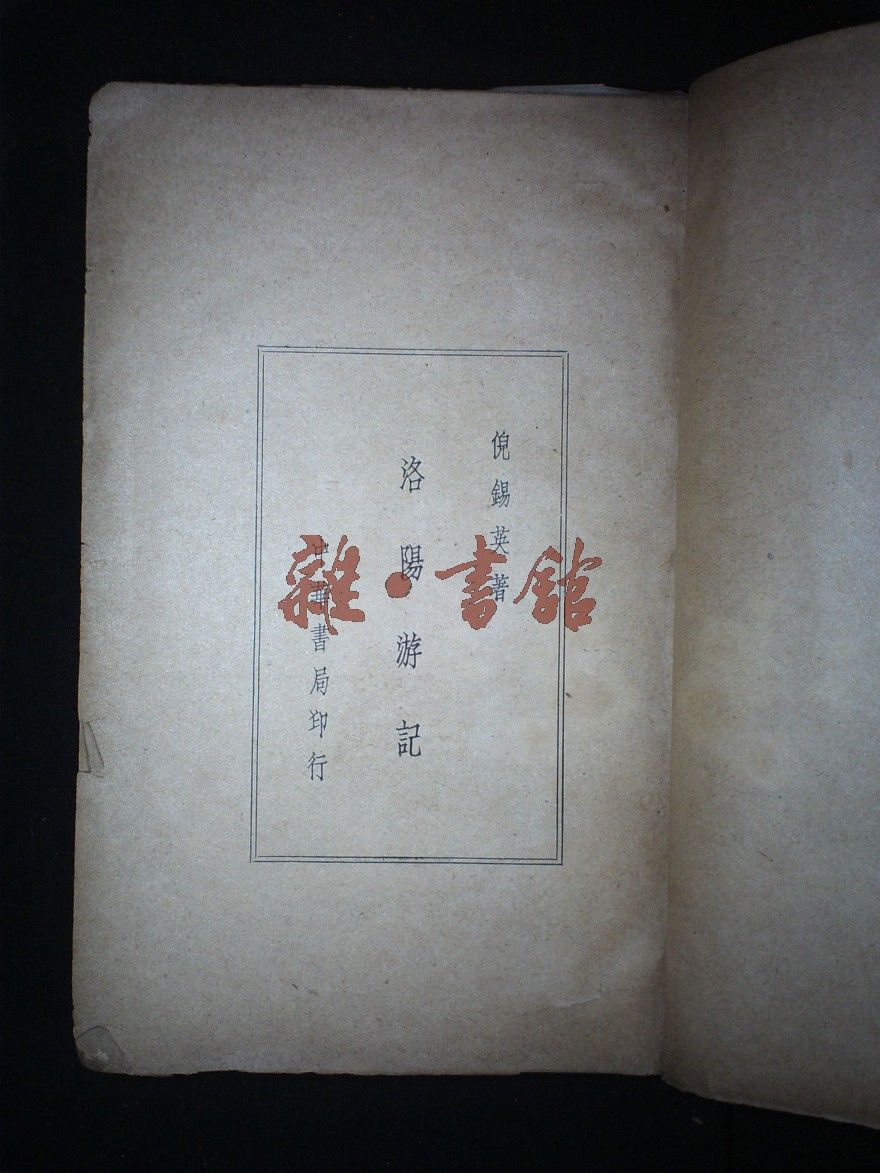 倪錫英著
洛陽游記
中華書局印行
雜·書館